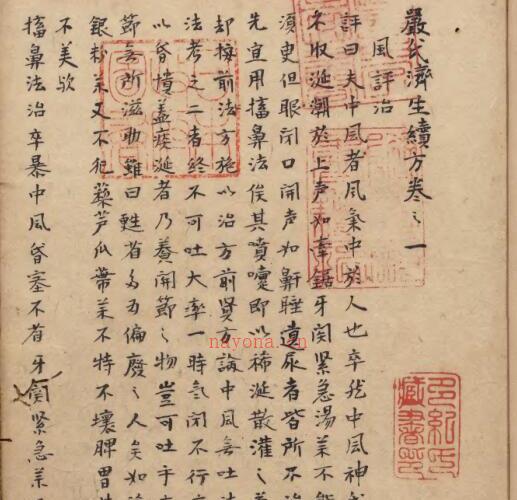 嚴氏濟生續方卷之一
風評治
評曰夫中風者風氣中於人也卒然中風神
不收涎潮於上声如牽鋸牙関緊急湯薬不能
須史但眼閉口開声如鼾睡遺尿者皆所不治
先宜用搐鼻法俟其噴嚔即以稀涎散灌之
却按前法方施以治方前賢方論中風無吐法
法考之二者終不可吐大率一時氣閉不行
以昏憒盖痰涎者乃養関節之物豈可吐乎
節無所滋助雖曰甦省多為偏廢之人矣如
銀粉薬又不犯藜芦瓜蒂薬不特不壞脾胃
不美欤
搐鼻法治卒暴中風昏塞不省牙関緊急薬
nayona.cn
藏書